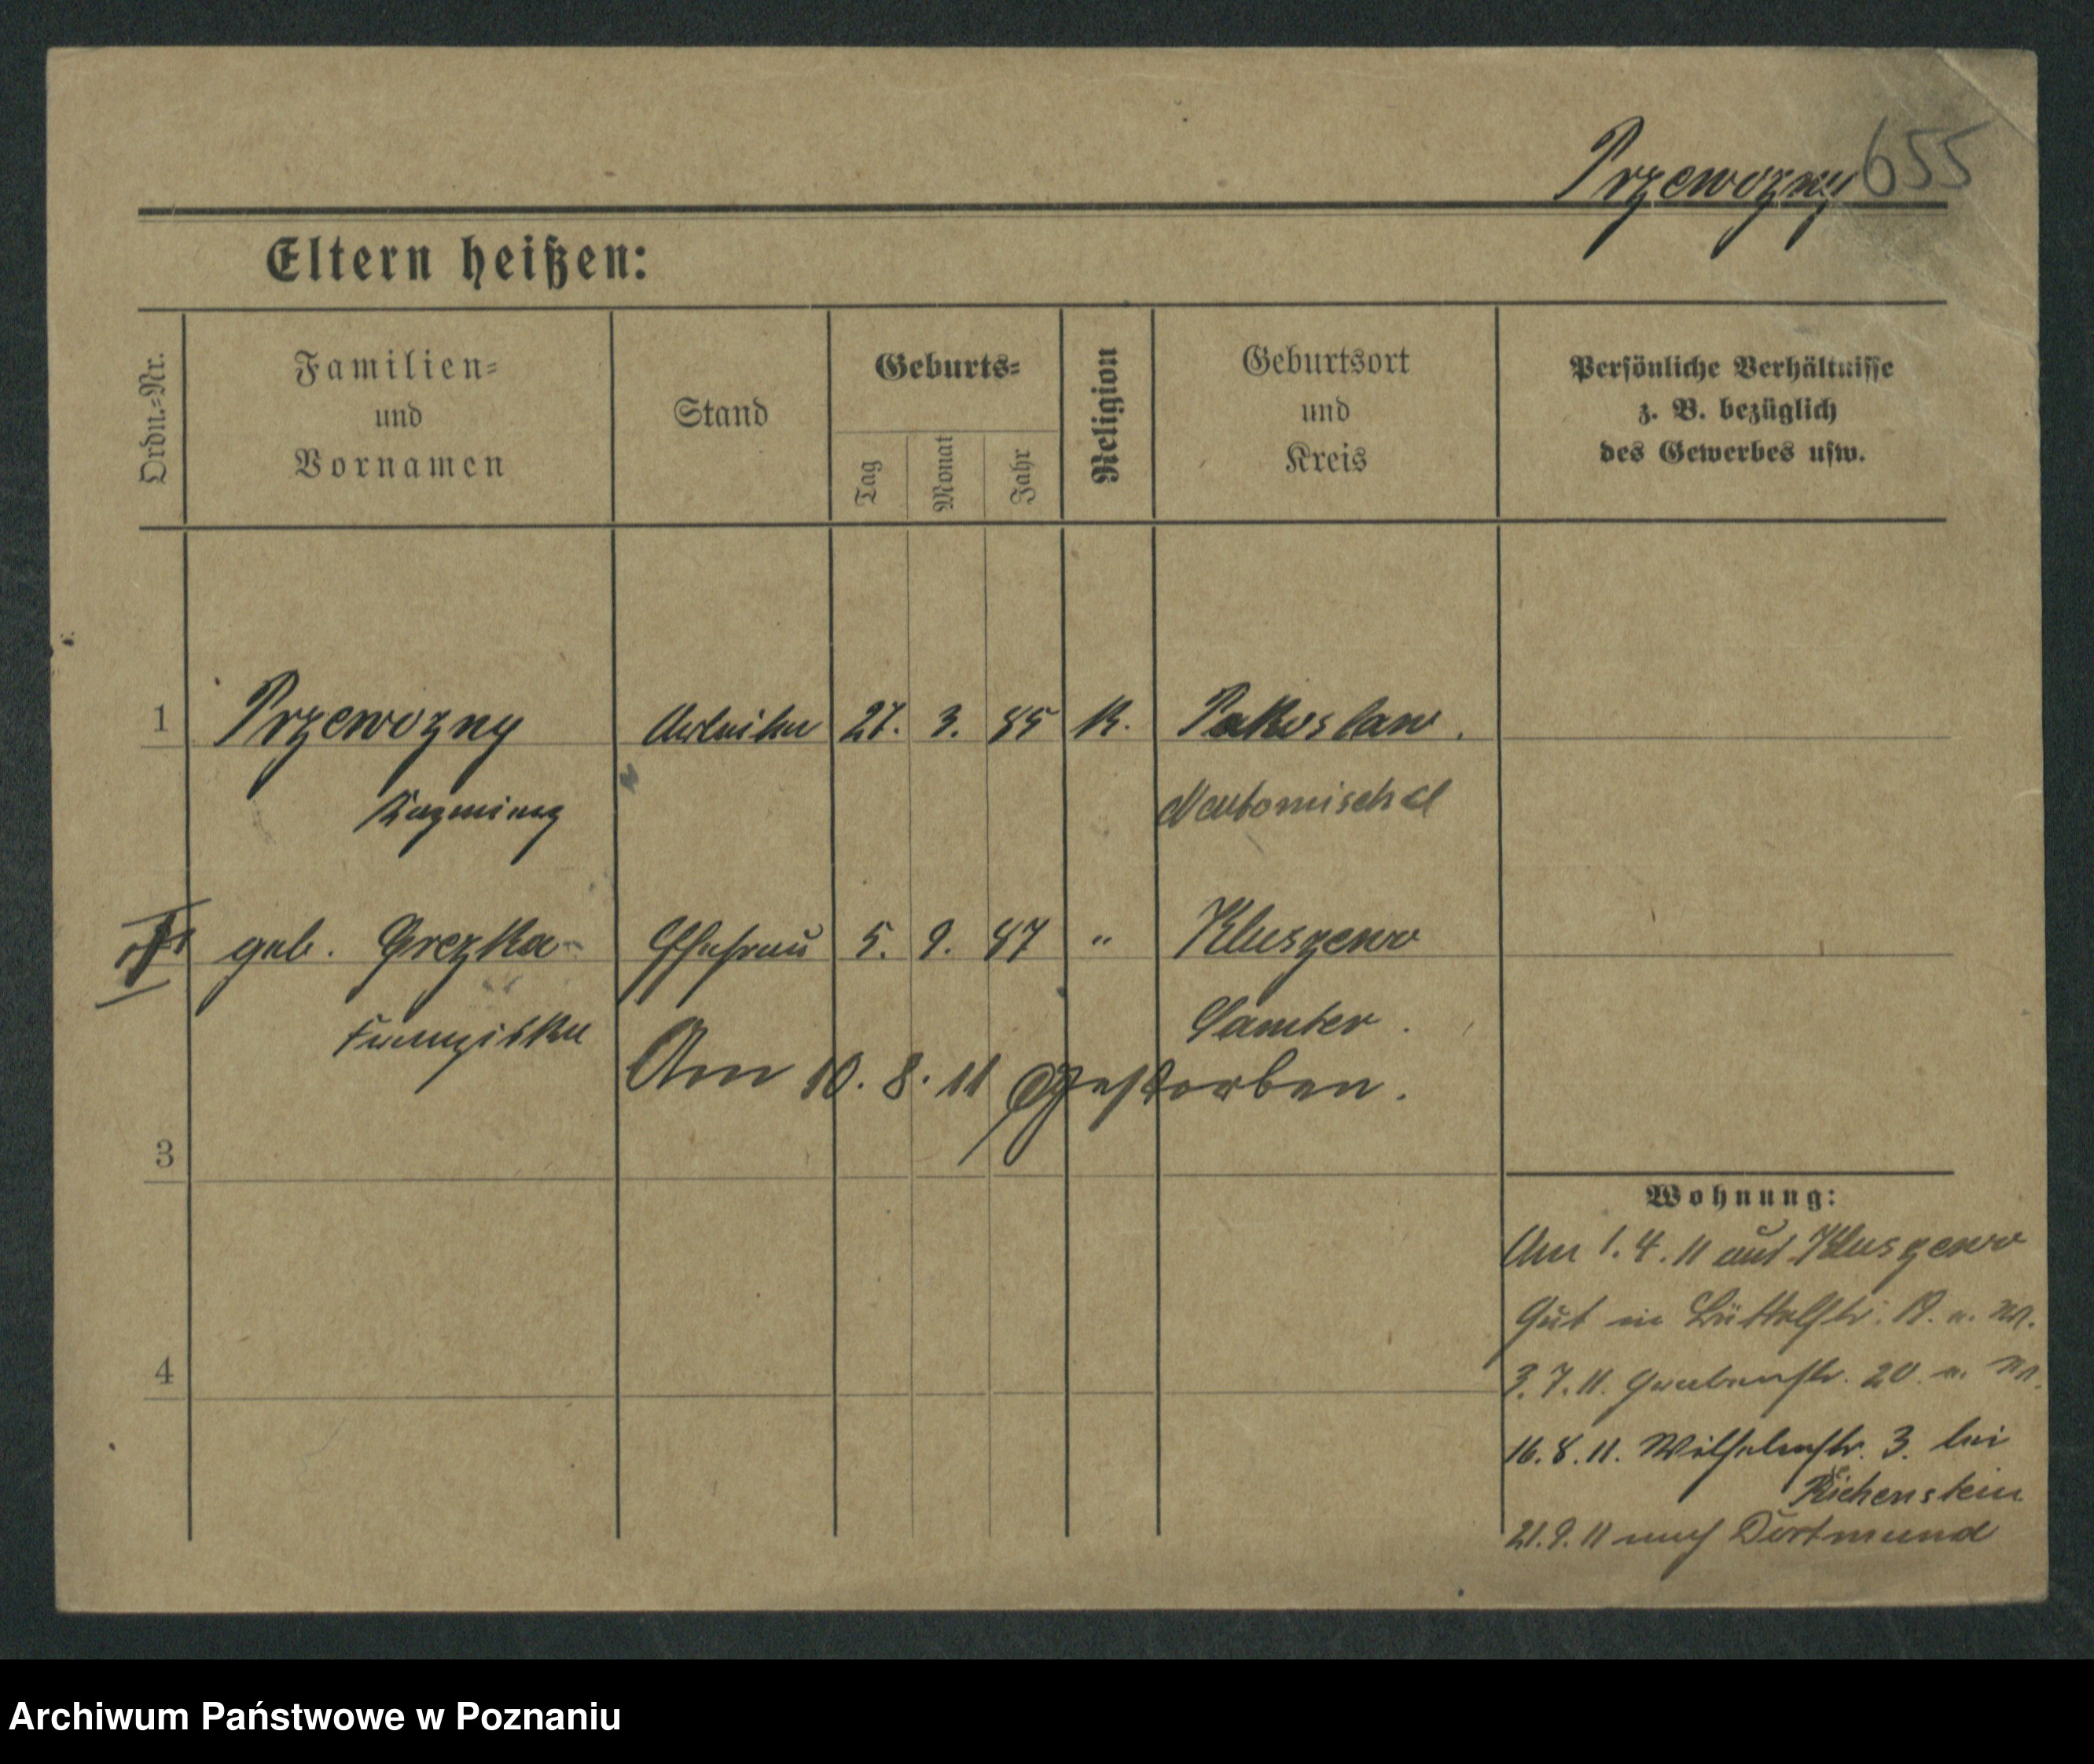 Przewozny 655
Eltern heißen:
Ordn.-Nr.
Familien-
und
Vornamen
Stand
Geburts-
Tag
Monat
Jahr
Religion
Geburtsort
und
Kreis
Persönliche Verhältnisse
z. B. bezüglich
des Gewerbes usw.
1 Przewozny Arbeiter 27. 3. 85 K. Pakoslaw.
Kazmierz Neutomischel
geb. Grezka Ehefrau 5. 9. 87 " Kluszewo
Franziska Samter.
Am 10. 8. 11 gestorben.
3
4
Wohnung:
Am 1. 4. 11 aus Kluszewo
Gut in Büttelstr. 19. b. M.
3. 7. 11. Grabenstr. 20. b. M.
16. 8. 11. Wilhelmstr. 3. bei
Richenstein
21. 9. 11 nach Dortmund
Archiwum Państwowe w Poznaniu